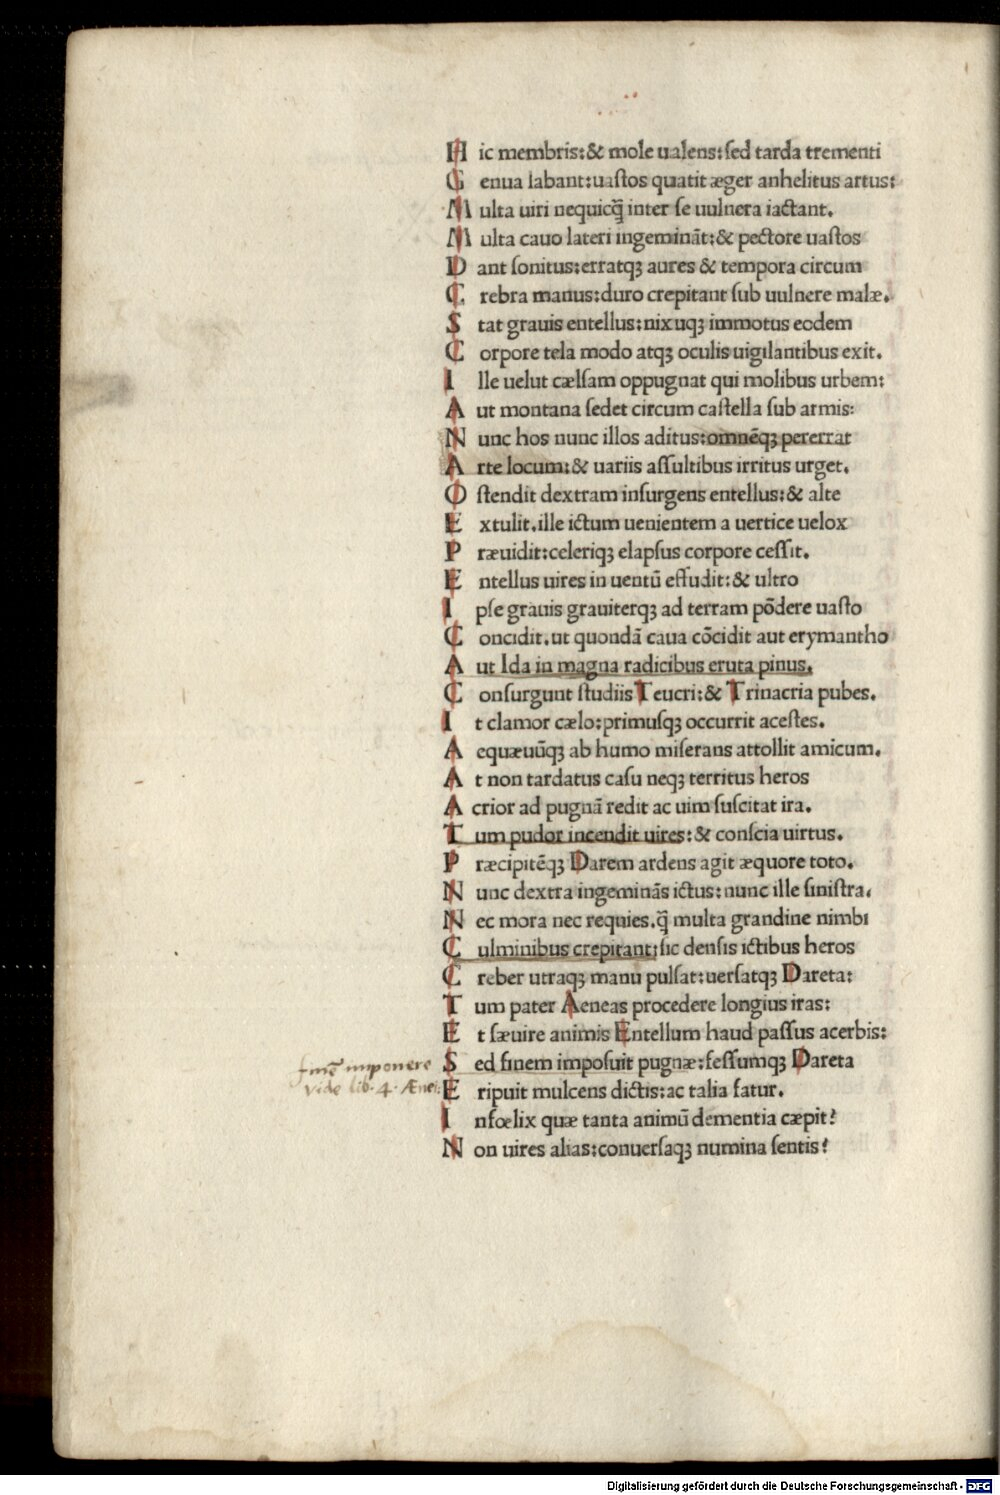 Hic membris:& mole ualens:sed tarda trementi
Genua labant:uastos quatit æger anhelitus artus:
Multa uiri nequicq̃ inter se uulnera iactant.
Multa cauo lateri ingeminãt:& pectore uastos
Dant sonitus:erratqꝫ aures & tempora circum
Crebra manus:duro crepitant sub uulnere malæ.
Stat grauis entellus:nixuqꝫ immotus eodem
Corpore tela modo atqꝫ oculis uigilantibus exit.
Ille uelut cælsam oppugnat qui molibus urbem:
Aut montana sedet circum castella sub armis:
Nunc hos nunc illos aditus:omnẽqꝫ pererrat
Arte locum:& uariis assultibus irritus urget.
Ostendit dextram insurgens entellus:& alte
Extulit.ille ictum uenientem a uertice uelox
Præuidit:celeriqꝫ elapsus corpore cessit.
Entellus uires in uentũ effudit:& ultro
Ipse grauis grauiterqꝫ ad terram põdere uasto
Concidit.ut quondã caua cõcidit aut erymantho
Aut Ida in magna radicibus eruta pinus.
Consurgunt studiis Teucri:& Trinacria pubes.
It clamor cælo:primusqꝫ occurrit acestes.
Aequæuũqꝫ ab humo miserans attollit amicum.
At non tardatus casu neqꝫ territus heros
Acrior ad pugnã redit ac uim suscitat ira.
Tum pudor incendit uires:& conscia uirtus.
Præcipitẽqꝫ Darem ardens agit æquore toto.
Nunc dextra ingeminãs ictus:nunc ille sinistra.
Nec mora nec requies.q̃ multa grandine nimbi
Culminibus crepitant:sic densis ictibus heros
Creber utraqꝫ manu pulsat:uersatqꝫ Dareta:
Tum pater Aeneas procedere longius iras:
Et sæuire animis Entellum haud passus acerbis:
Sed finem imposuit pugnæ:fessumqꝫ Dareta
finẽ imponere
vide lib. 4. Ænei:
Eripuit mulcens dictis:ac talia fatur.
Infœlix quæ tanta animũ dementia cæpit?
Non uires alias:conuersaqꝫ numina sentis?
Digitalisierung gefördert durch die Deutsche Forschungsgemeinschaft - DFG